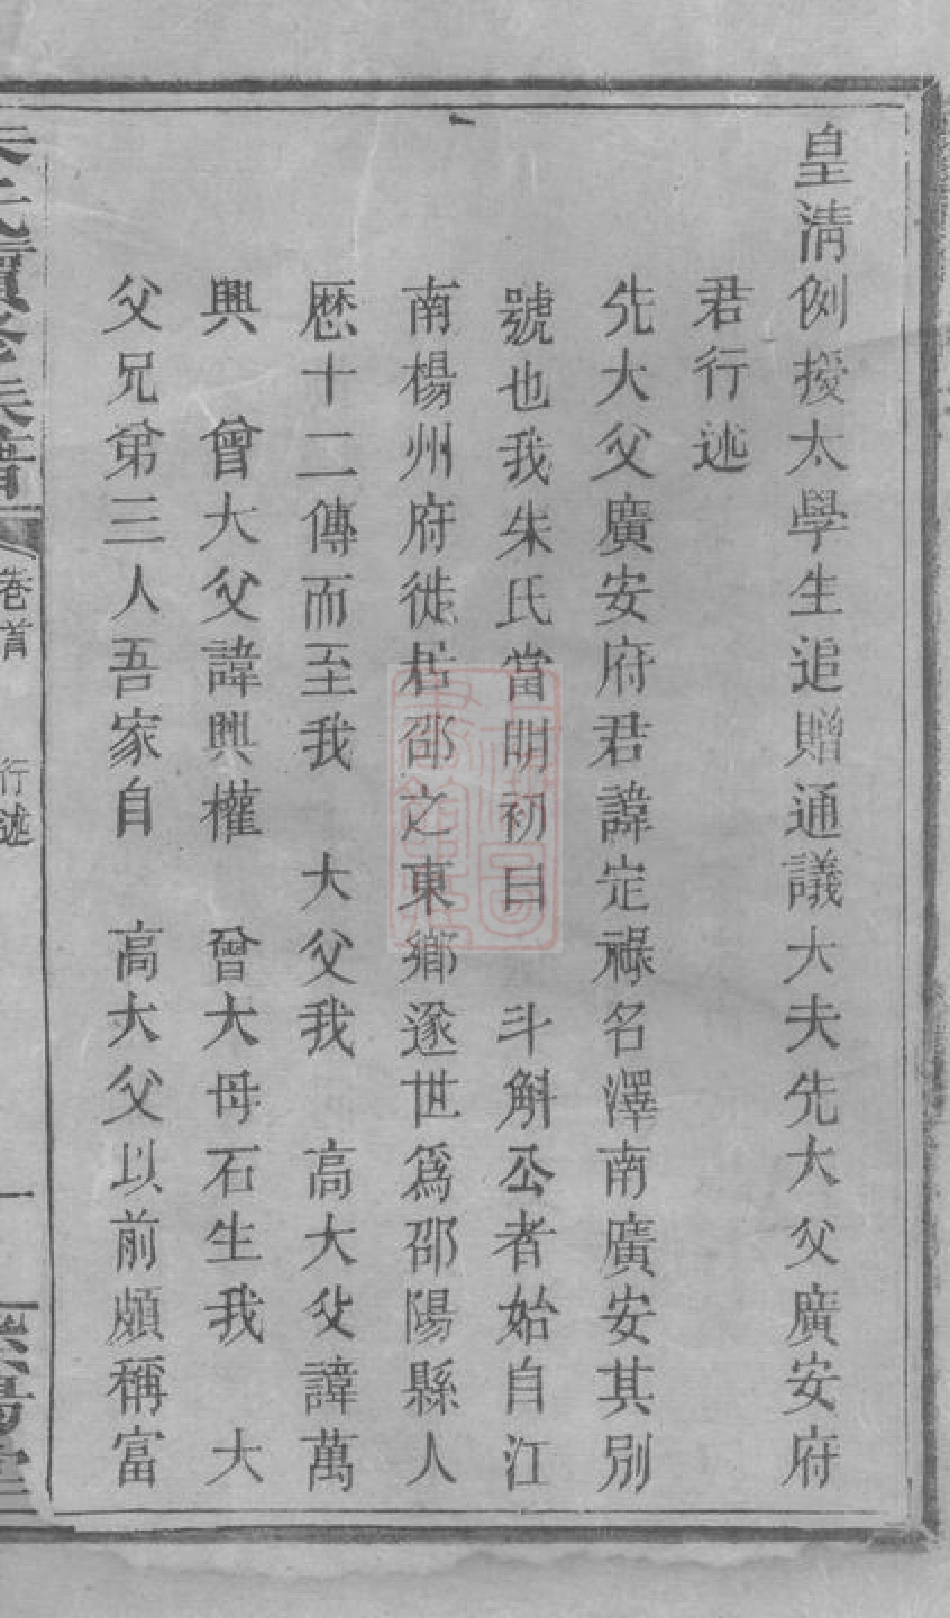 皇淸例授太學生追贈通議大夫先大父廣安府
君行述
先大父廣安府君諱定祿名澤南廣安其別
號也我朱氏當明初曰 斗斛公者始自江
南楊州府徙居邵之東鄉遂世爲邵陽縣人
歷十二傳而至我 大父我 高大父諱萬
興 曾大父諱興權 曾大母石生我 大
父兄弟三人吾家自 高大父以前頗稱富
朱氏續修族譜 卷首 行述 一